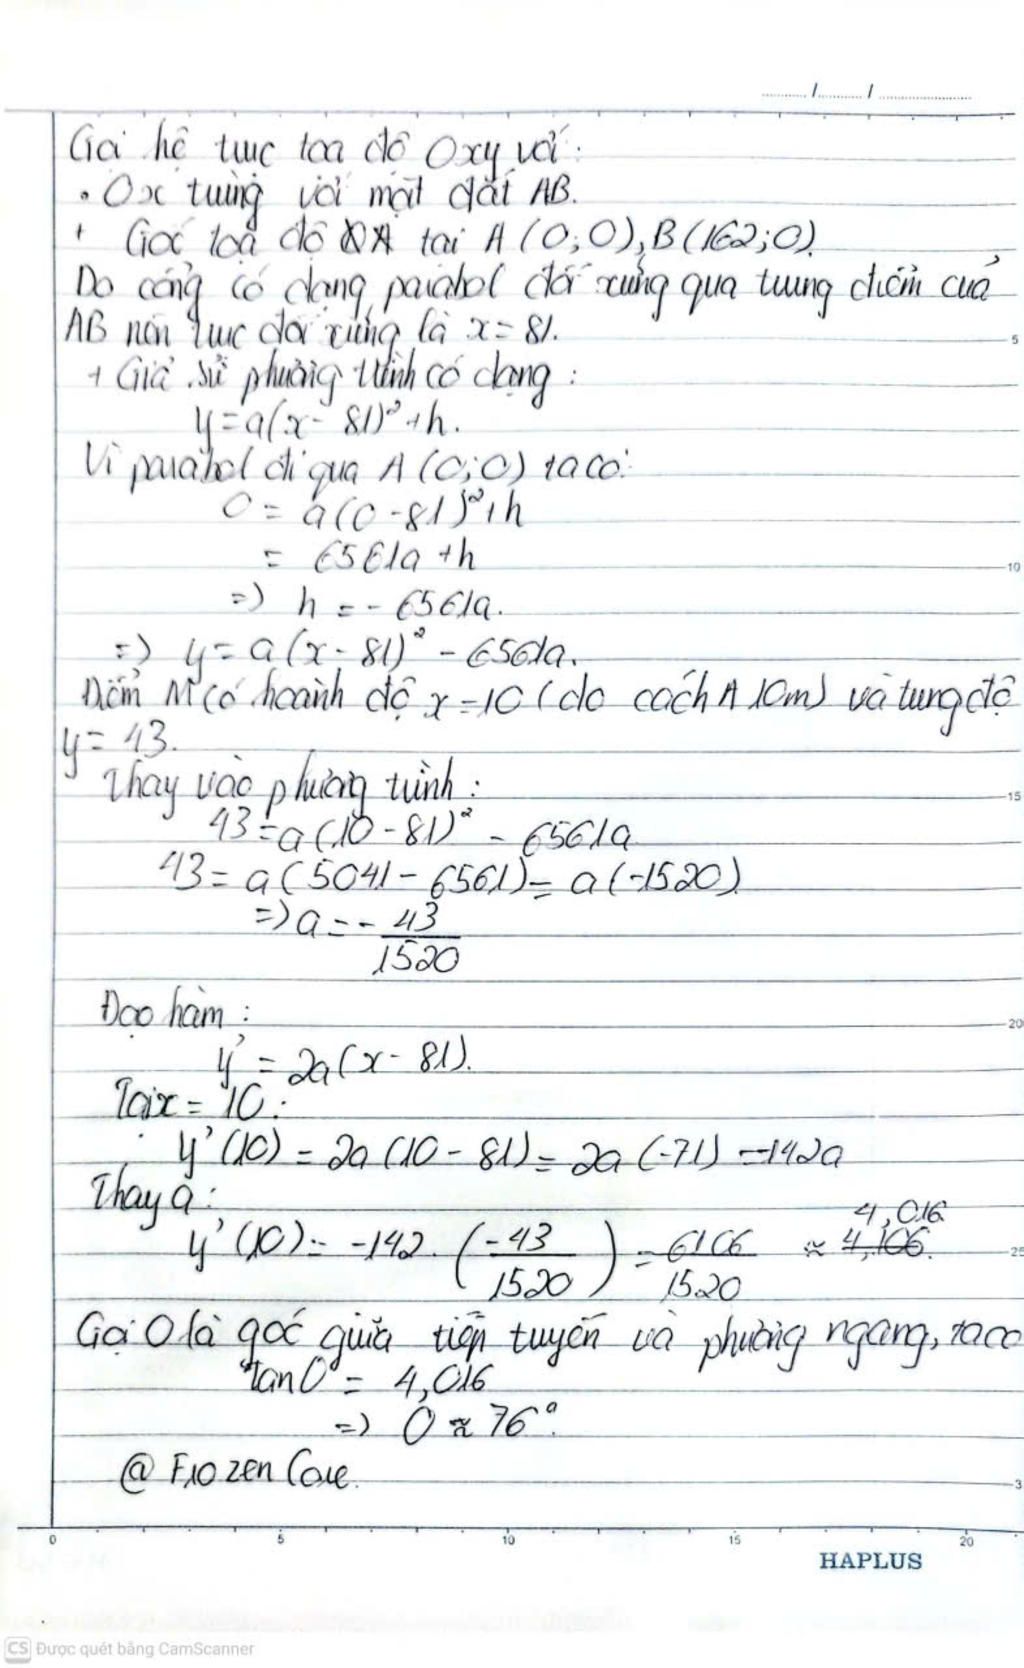 Gọi hệ trục tọa độ Oxy với:
• Ox trùng với mặt đất AB.
+ Gốc toạ độ A tại A (0;0), B(162;0).
Do cổng có dạng parabol đối xứng qua trung điểm của
AB nên trục đối xứng là x = 81.
+ Giả sử phương trình có dạng :
y = a(x - 81)² + h.
Vì parabol đi qua A (0;0) ta có:
0 = a(0 - 81)² + h
= 6561a + h
=> h = - 6561a.
=> y = a(x - 81)² - 6561a.
Điểm M có hoành độ x = 10 (do cách A 10m) và tung độ
y = 43.
Thay vào phương trình :
43 = a(10 - 81)² - 6561a
43 = a(5041 - 6561) = a(-1520)
=> a = - 43/1520
Đạo hàm :
y' = 2a(x - 81).
Tại x = 10 :
y'(10) = 2a(10 - 81) = 2a(-71) = -142a
Thay a :
4,016
y'(10) = -142 (-43/1520) = 6106/1520 ≈ 4,106.
Gọi O là góc giữa tiếp tuyến và phương ngang, ta có
tan O = 4,016
=> O ≈ 76°.
@ Frozen Core.
0 5 10 15 20
HAPLUS
CS Được quét bằng CamScanner